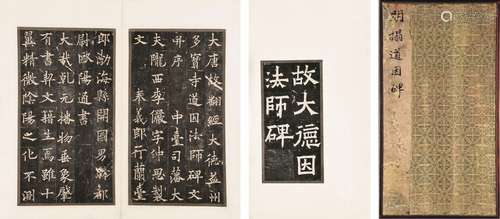 明搨道因碑
故大德因
法師碑
大唐故翻經大德益州
多寶寺道因法師碑文
并序 中臺司藩大
夫隴西李儼字仲思製
文 奉義郎行蘭臺
郎渤海縣開國男騎都
尉歐陽通書
大哉乾元播物垂象肇
有書契文籍生焉雖十
翼精微陰陽之化不測